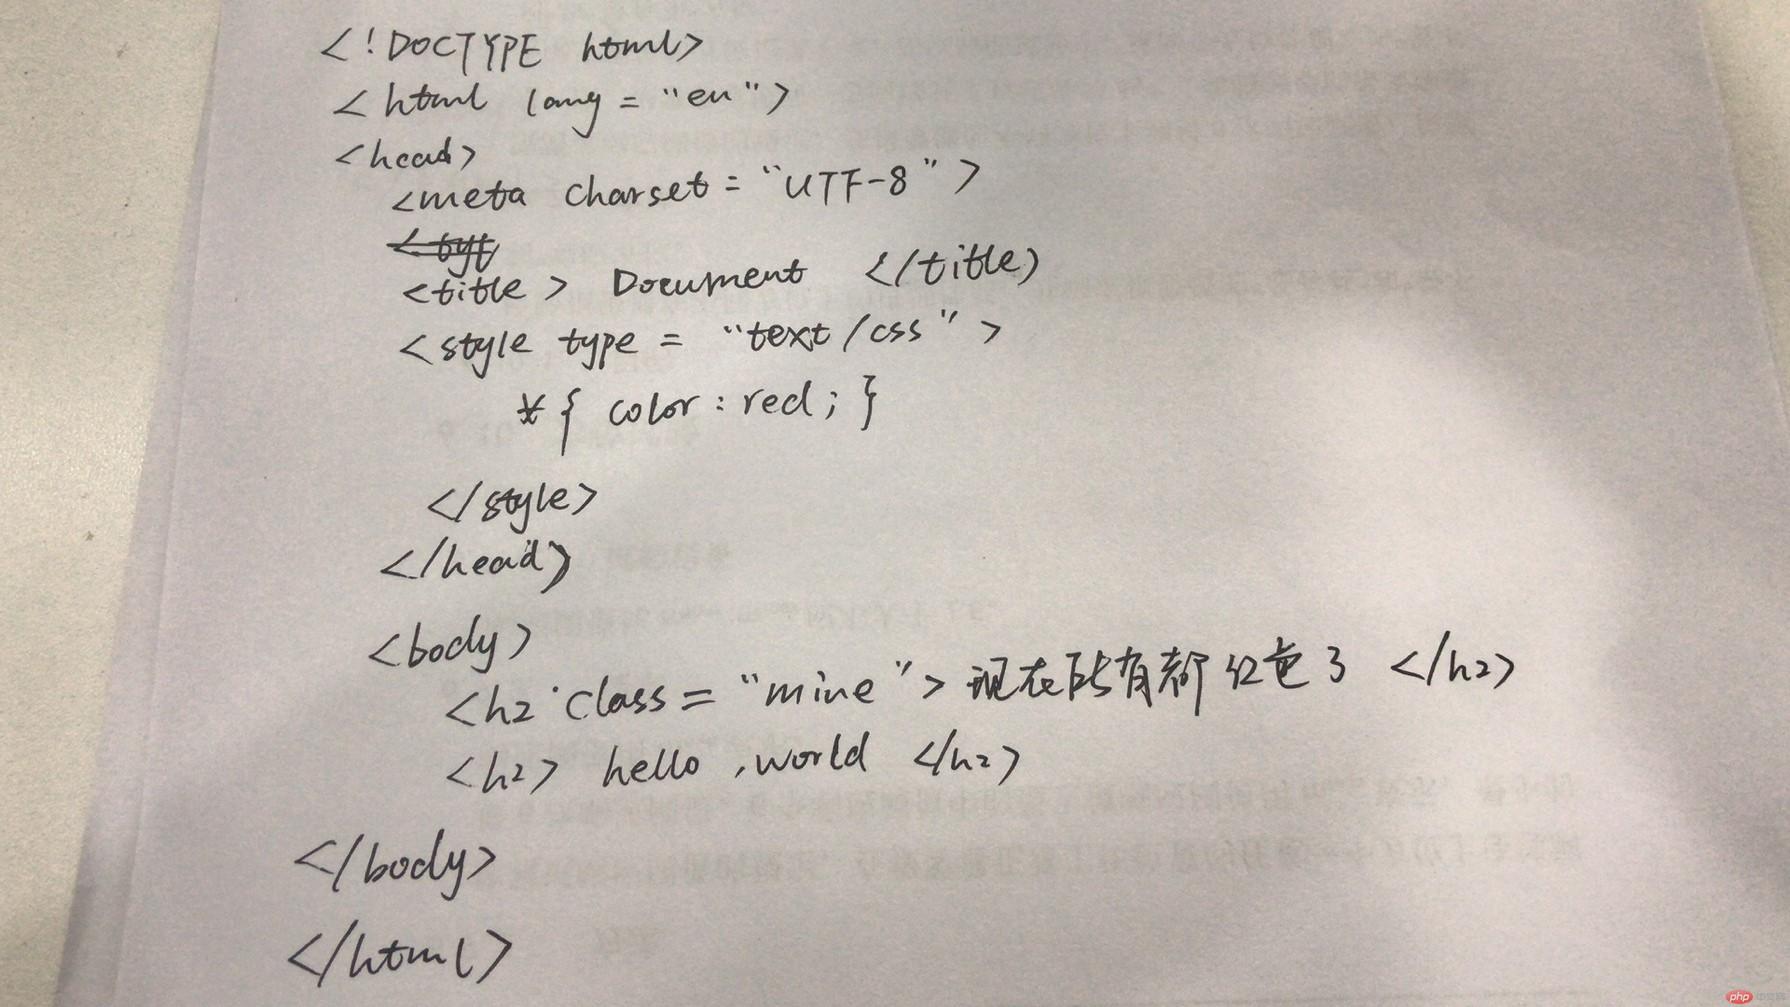 <!DOCTYPE html>
<html lang="en">
<head>
<meta charset="UTF-8">
<title> Document </title>
<style type="text/css">
*{ color:red; }
</style>
</head>
<body>
<h2 class="mine">现在所有都红色了 </h2>
<h2> hello ,world </h2>
</body>
</html>
php